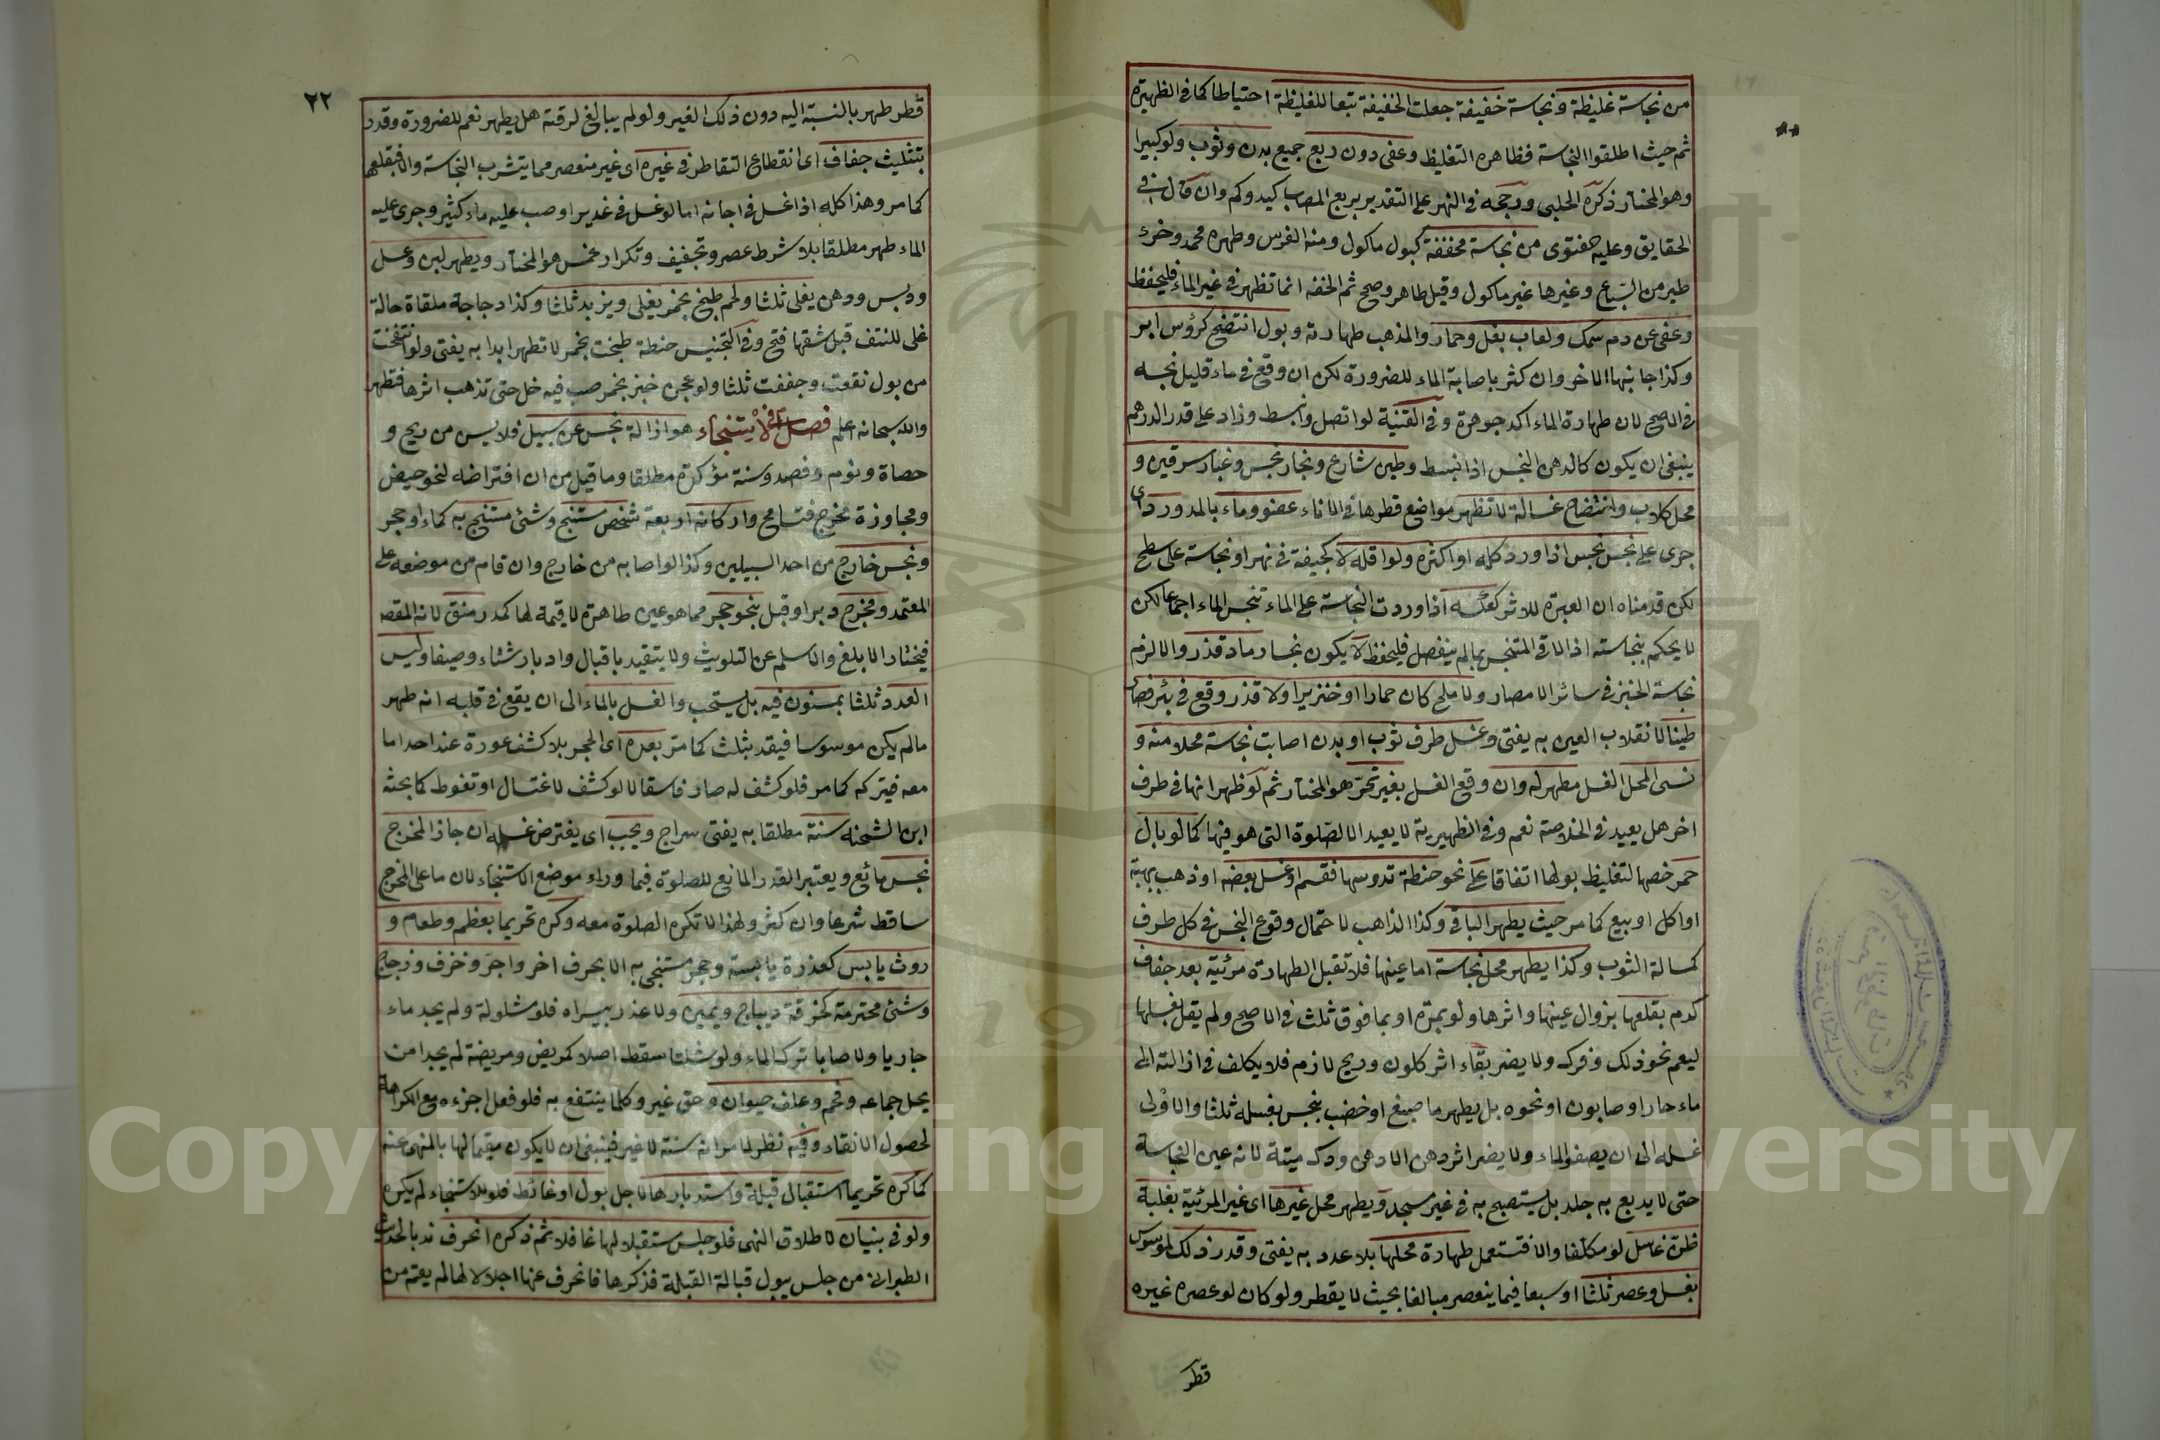 من نجاسة غليظة ونجاسة خفيفة جعلت الخفيفة تبعا للغليظة احتياطا كما في الظهيرة
ثم حيث اطلقوا النجاسة فظاهره التغليظ وعفى دون ربع جميع بدن وثوب ولو كبيرا
وهو المختار ذكره الحلبى ورجحه في النهر على التقدير بربع المصاب كيد وكم وان قال في
الحقايق وعليه الفتوى من نجاسة مخففة كبول ماكول ومنه الفرس وطهره محمد وخرء
طير من السباع وغيرها غير ماكول وقيل طاهر وصحح ثم الخفه انما تظهر في غير الماء فليحفظ
وعفى عن دم سمك ولعاب بغل وحمار والمذهب طهارته وبول انتضح كرؤس ابر
وكذا جانبها الاخر وان كثر باصابة الماء للضرورة لكن ان وقع في ماء قليل نجسه
في الاصح لان طهارة الماء اكد جوهرة وفي القنية لو اتصل وانبسط وزاد على قدر الدرهم
ينبغى ان يكون كالدهن النجس اذا انبسط وطين شارع وبخار نجس وغبار سرقين و
محل كلاب وانتضاح غسالة لا تظهر مواضع قطرها في الاناء عفو وماء بالمد ورد اى
جرى على نجس نجس اذا ورد كله او اكثره ولو اقله لا كجيفة في نهر او نجاسة على سطح
لكن قدمناه ان العبرة للاثر كعكسه اذا وردت النجاسة على الماء تنجس الماء اجماعا لكن
لا يحكم بنجاسته اذا لاقى المتنجس ما لم ينفصل فليحفظ لا يكون نجسا رماد قذر والا لزم
نجاسة الخبز في سائر الامصار ولا ملح كان حمارا او خنزيرا ولا قذر وقع في بئر فصار
طينا لانقلاب العين به يفتى وغسل طرف ثوب او بدن اصابت نجاسة محلا منه و
نسى المحل الغسل مطهر له وان وقع الغسل بغير تحر هو المختار ثم لو ظهر انها في طرف
اخر هل يعيد في الخلاصة نعم وفي الظهيرية لا يعيد الا الصلوة التى هو فيها كما لو بال
حمر خصها لتغليظ بولها اتفاقا على نحو حنطة تدوسها فقسم او غسل بعضه او ذهب بهبة
او اكل او بيع كما مر حيث يطهر الباقى وكذا الذاهب لاحتمال وقوع النجس في كل طرف
كمسالة الثوب وكذا يطهر محل نجاسة اما عينها فلا تقبل الطهارة مرئية بعد جفاف
كدم بقلعها بزوال عينها واثرها ولو بمرة او بما فوق ثلث في الاصح ولم يقل بغسلها
ليعم نحو ذلك وفرك ولا يضر بقاء اثر كلون وريح لازم فلا يكلف في ازالته الى
ماء حار او صابون او نحوه بل يطهر ما صبغ او خضب بنجس بغسله ثلثا والاولى
غسله الى ان يصفو الماء ولا يضر اثر دهن الا دهن ودك ميتة لانه عين النجاسة
حتى لا يدبع به جلد بل يستصبح به في غير مسجد ويطهر محل غيرها اى غير المرئية بغلبة
ظن غاسل لو مكلفا والا فمستعمل طهارة محلها بلا عدد به يفتى وقدر ذلك لموسوس
بغسل وعصر ثلثا او سبعا فيما ينعصر مبالغا بحيث لا يقطر ولو كان لو عصره غيره
قطر
٢٢
قطر طهر بالنسبة اليه دون ذلك الغير ولو لم يبالغ لرقته هل يطهر نعم للضرورة وقدر
بتثليث جفاف اى انقطاع التقاطر في غيره اى غير منعصر مما يتشرب النجاسة والا فبقلعها
كما مر وهذا كله اذا غسل في اجانه اما لو غسل في غدير او صب عليه ماء كثير وجرى عليه
الماء طهر مطلقا بلا شرط عصر وتجفيف وتكرار غمس هو المختار ويطهر لبن وعسل
ودبس ودهن يغلى ثلثا ولحم طبخ بخمر يغلى ويبرد ثلثا وكذا دجاجة ملقاة حالة
غلى للنتف قبل شقها فتح وفي التجنيس حنطة طبخت بخمر لا تطهر ابدا به يفتى ولو انتفخت
من بول نقعت وجففت ثلثا ولو عجن خبز بخمر صب فيه خل حتى تذهب اثرها فتطهر
والله سبحانه اعلم فصل في الاستنجاء هو ازالة نجس عن سبيل فلا يسن من ريح و
حصاة ونوم وفصد وسنة مؤكدة مطلقا وما قيل من ان افتراضه لنحو حيض
ومجاوزة مخرج فتسامح واركانه اربعة شخص مستنج وشئ مستنج به كماء او حجر
ونجس خارج من احد السبيلين وكذا لو اصابه من خارج وان قام من موضعه على
المعتمد ومخرج دبر او قبل بنحو حجر مما هو عين طاهرة لا قيمة لها كمدر منق لانه المقص
فيختار الابلغ والاسلم عن التلويث ولا يتقيد باقبال وادبار شتاء وصيفا وليس
العدد ثلثا بمسنون فيه بل يستحب والغسل بالماء الى ان يقع في قلبه انه طهر
ما لم يكن موسوسا فيقدر بثلث كما مر بعده اى الحجر بلا كشف عورة عند احد اما
معه فيتركه كما مر فلو كشف له صار فاسقا لا لو كشف لاغتسال او تغوط كما بحثه
ابن الشحنه سنة مطلقا به يفتى سراج ويجب اى يفترض غسله ان جاز المخرج
نجس مائع ويعتبر القدر المانع للصلوة فيما وراء موضع الاستنجاء لان ما على المخرج
ساقط شرعا وان كثر ولهذا لا تكره الصلوة معه وكره تحريما بعظم وطعام و
روث يابس كعذرة يابسة وحجر مستنجى به الا بحرف اخر واجر وخزف وزجاج
وشئ محترمة كخرقة ديباج ويمين ولا عذر بيسراه فلو مشلولة ولم يجد ماء
جاريا ولا صابا ترك الماء ولو شلتا سقط اصلا كمريض ومريضة لم يجدا من
يحل جماعه وفحم وعلف حيوان وحق غير وكلما ينتفع به فلو فعل اجزءه مع الكراهة
لحصول الانقاء وفيه نظر لما مر انه سنة لا غير فينبغى ان لا يكون مقيما لها بالمنهى عنه
كما كره تحريما استقبال قبلة واستدبارها لاجل بول او غائط فلو للاستنجاء لم يكره
ولو في بنيان لاطلاق النهى فلو جلس مستقبلا لها غافلا ثم ذكره انحرف ندبا لحديث
الطبرانى من جلس يبول قبالة القبلة فذكرها فانحرف عنها اجلالا لها لم يقم من
Copyright © King Saud University